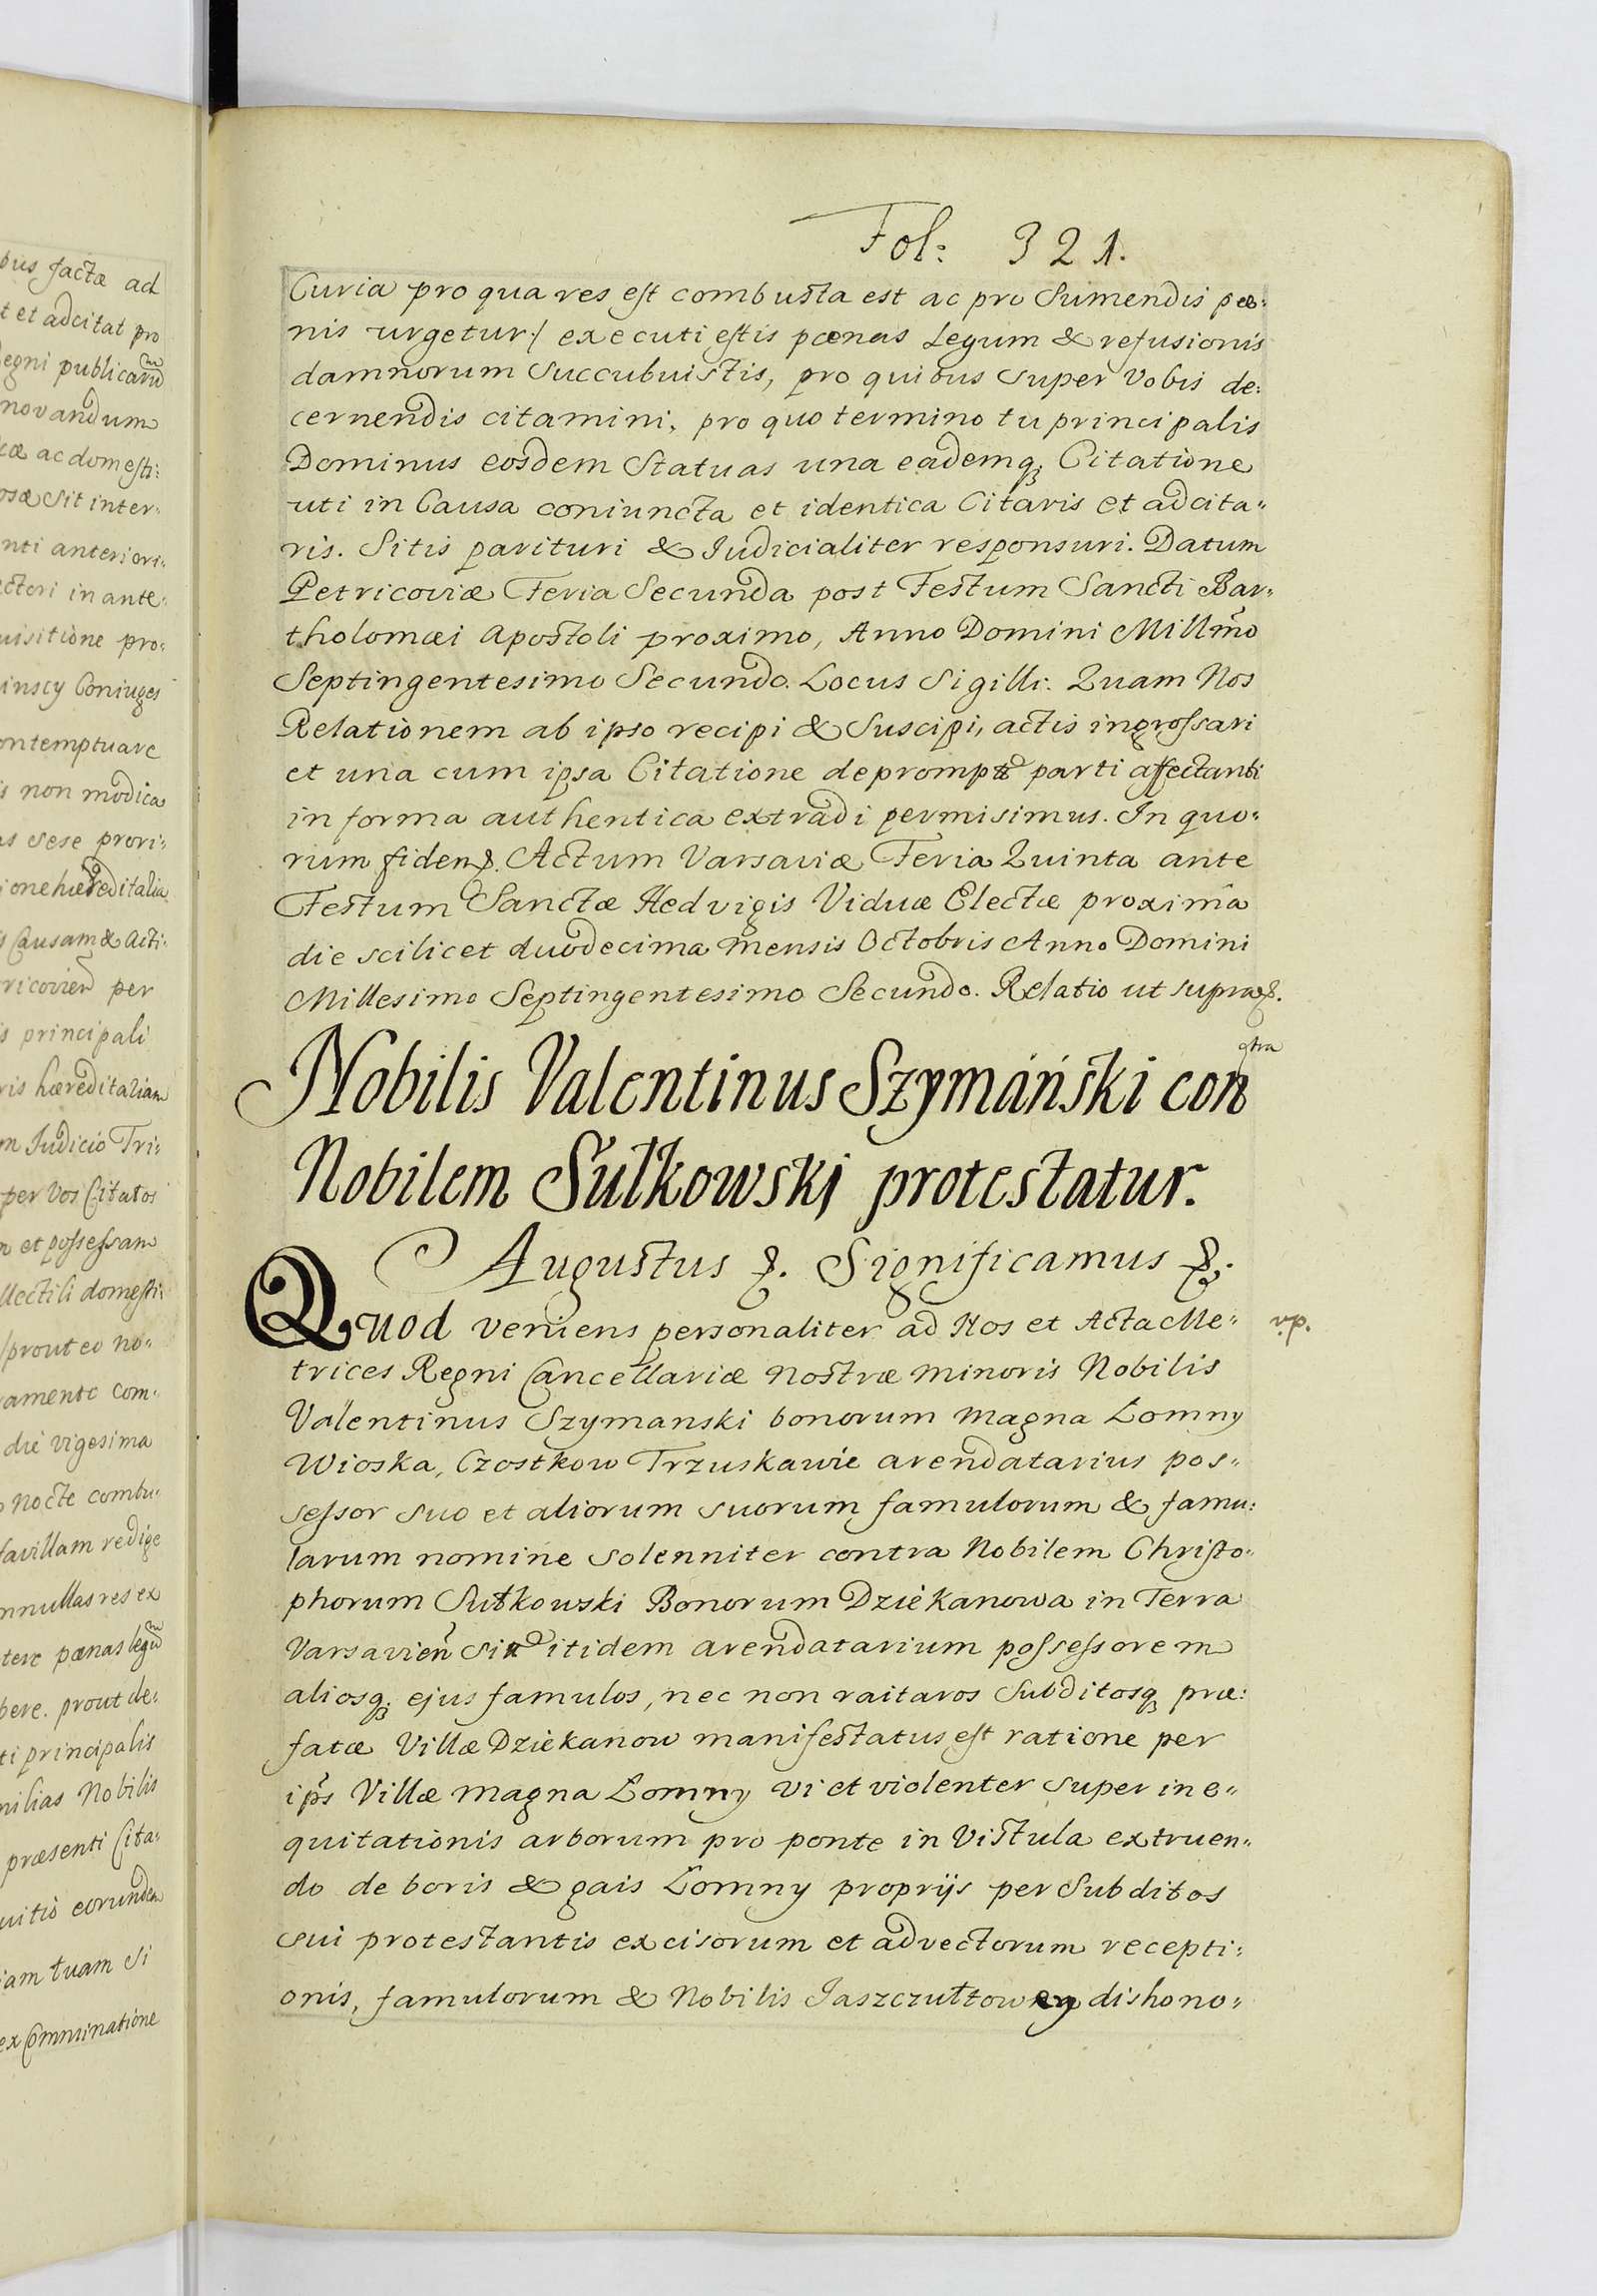 bus factæ ad
t et adcitat pro
Regni publicarũ
novandum
cæ ac domesti:
osæ Sit inter:
nti anteriori:
ectori in ante:
uisitione pro:
inscy Coniuges
ontemptuare
s non modica
as sese prori:
ione hæreditalia
s Causam & Acti:
ricovien̄ per
s principali
ris hæreditaliam
m Judicio Tri:
per Vos Citatos
m et possessam
llectili domesti:
/prout eo no:
ramente com:
die vigesima
Nocte combu:
favillam redige
nnullas res ex
tere pœnas legũ
bere. prout de:
ti principalis
milias Nobilis
præsenti Cita:
uitio eorundem
iam tuam Si
ex Comminatione
Fol: 321.
Curia pro qua res est combusta est ac pro Sumendis pœ:
nis urgetur./ executi estis pœnas Legum & refusionis
damnorum Succubuistis, pro quibus super Vobis de:
cernendis citamini, pro quo termino tu principalis
Dominus eosdem Statuas una eademq3 Citatione
uti in Causa coniuncta et identica Citaris et adcita:
ris. Sitis parituri & Judicialiter responsuri. Datum
Petricoviæ Feria Secunda post Festum Sancti Bar:
tholomæi Apostoli proximo, Anno Domini Millm̃o
Septingentesimo Secundo. Locus Sigilli. Quam Nos
Relationem ab ipso recipi & Suscipi, actis ingrossari
et una cum ipsa Citatione deprompt̃ parti affectanti
in forma authentica extradi permisimus. In quo:
rum fidem &. Actum Varsaviæ Feria Quinta ante
Festum Sanctæ Hedvigis Viduæ Electæ proxima
die scilicet duodecima mensis Octobris Anno Domini
Millesimo Septingentesimo Secundo. Relatio ut supra &.
Nobilis Valentinus Szymański con
Nobilem Sułkowski protestatur.
Augustus &. Significamus &.
Quod veniens personaliter ad Nos et Acta Me: v.p.
trices Regni Cancellariæ Nostræ Minoris Nobilis
Valentinus Szymanski bonorum Magna Łomny
Wioska, Czostkow Trzuskawie arendatarius pos:
sessor suo et aliorum suorum famulorum & famu:
larum nomine solenniter contra Nobilem Christo:
phorum Sułkowski Bonorum Dziekanowa in Terra
Varsavien̄ sit̃ itidem arendatarium possessorem
aliosq3 ejus famulos, nec non raitaros Subditosq3 præ:
fatæ Villæ Dziekanow manifestatus est ratione per
ip̃s Villæ Magna Łomny vi et violenter super ine:
quitationis arborum pro ponte in Vistula extruen:
do de boris & gais Łomny propriis per Subditos
sui protestantis excisorum et advectorum recepti:
onis, famulorum & Nobilis dishono: